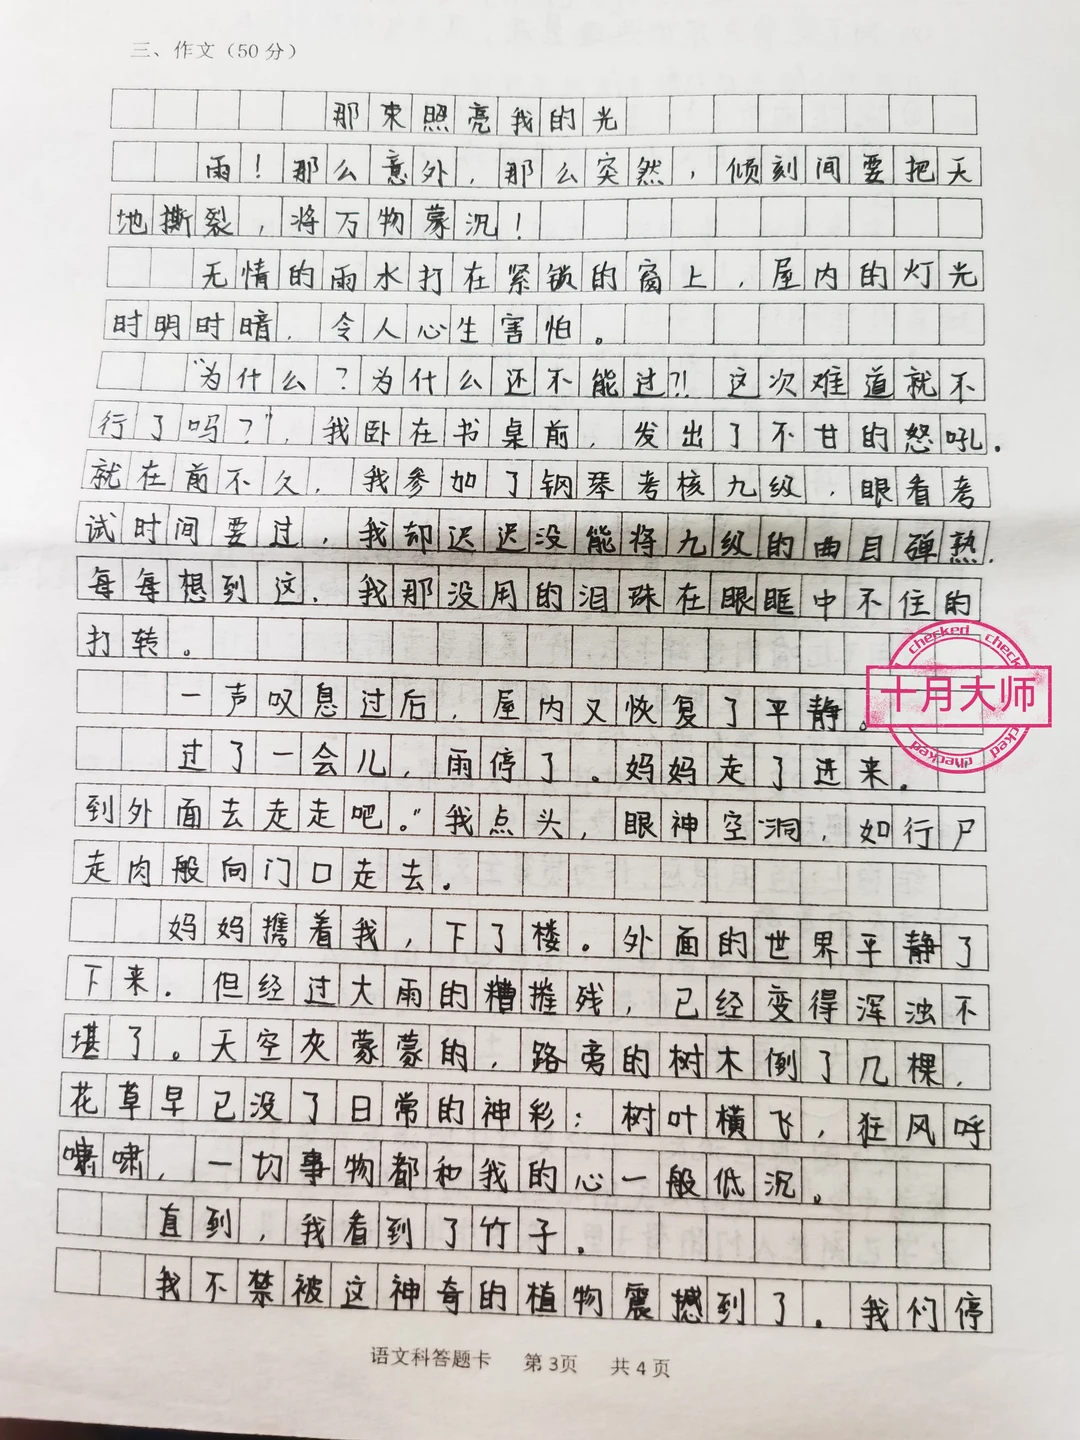 三、作文（50分）
那束照亮我的光
雨！那么意外，那么突然，倾刻间要把天
地撕裂，将万物蒙沉！
无情的雨水打在紧锁的窗上，屋内的灯光
时明时暗，令人心生害怕。
“为什么？为什么还不能过？！这次难道就不
行了吗？”，我卧在书桌前，发出了不甘的怒吼。
就在前不久，我参加了钢琴考核九级，眼看考
试时间要过，我却迟迟没能将九级的曲目弹熟，
每每想到这，我那没用的泪珠在眼眶中不住的
打转。
一声叹息过后，屋内又恢复了平静。
过了一会儿，雨停了。妈妈走了进来。
到外面去走走吧。”我点头，眼神空洞，如行尸
走肉般向门口走去。
妈妈携着我，下了楼。外面的世界平静了
下来。但经过大雨的糟摧残，已经变得浑浊不
堪了。天空灰蒙蒙的，路旁的树木倒了几棵，
花草早已没了日常的神彩；树叶横飞，狂风呼
啸啸，一切事物都和我的心一般低沉。
直到，我看到了竹子。
我不禁被这神奇的植物震撼到了。我们停
语文科答题卡 第3页 共4页
十月大师
checked checked
checked checked